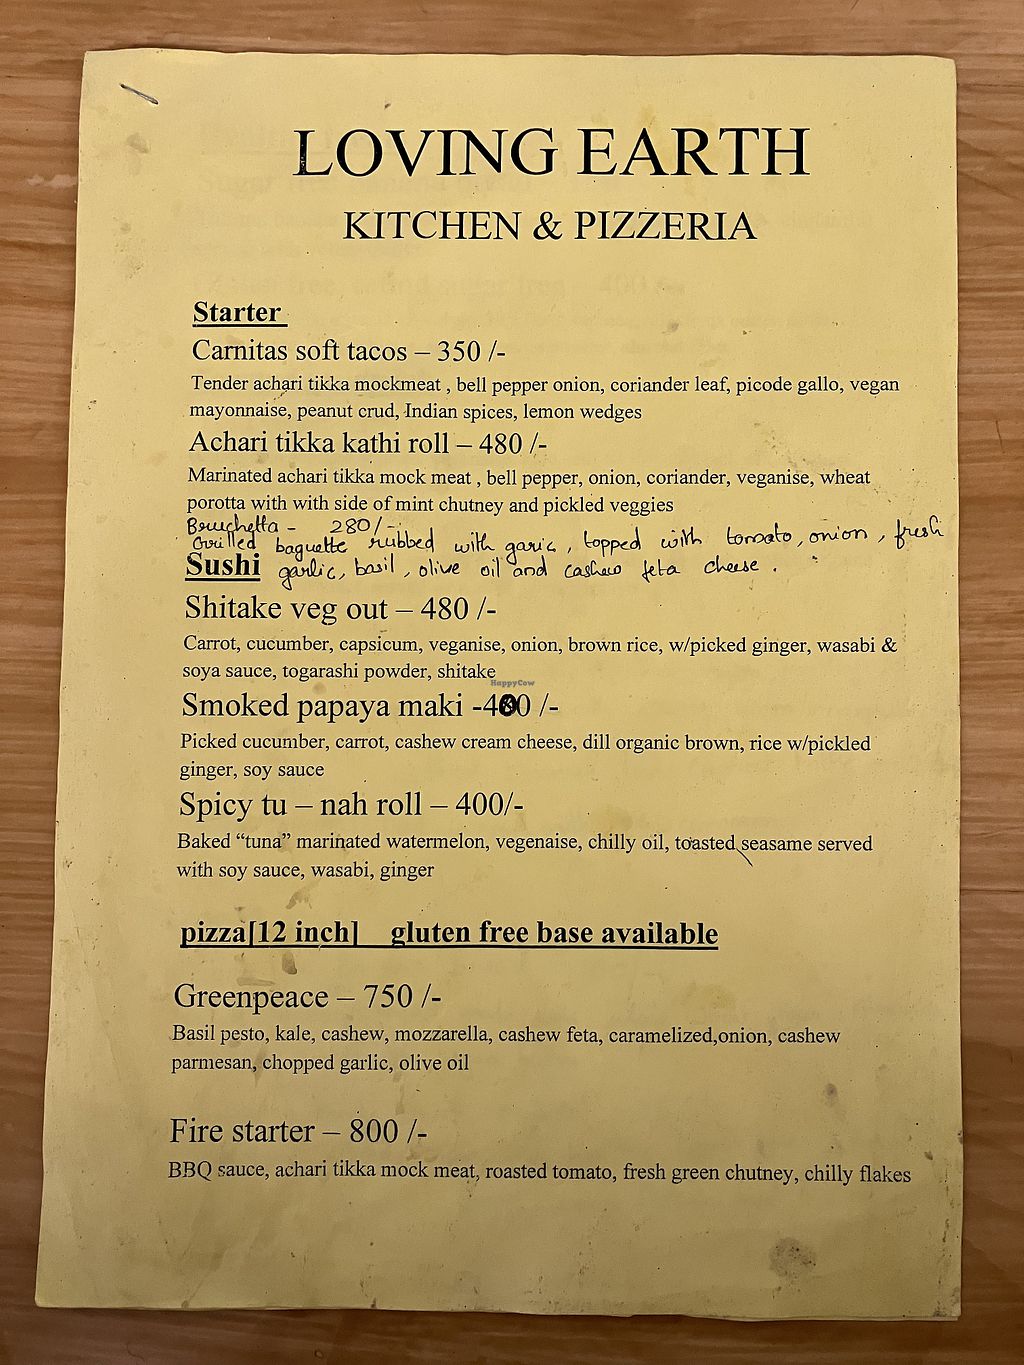 LOVING EARTH
KITCHEN & PIZZERIA
Starter
Carnitas soft tacos – 350 /-
Tender achari tikka mockmeat , bell pepper onion, coriander leaf, picode gallo, vegan
mayonnaise, peanut crud, Indian spices, lemon wedges
Achari tikka kathi roll – 480 /-
Marinated achari tikka mock meat , bell pepper, onion, coriander, veganise, wheat
porotta with with side of mint chutney and pickled veggies
Bruchetta - 280/-
Grilled baguette rubbed with garic, topped with tomato, onion, fresh
garlic, basil, olive oil and cashew feta cheese.
Sushi
Shitake veg out – 480 /-
Carrot, cucumber, capsicum, veganise, onion, brown rice, w/picked ginger, wasabi &
soya sauce, togarashi powder, shitake
HappyCow
Smoked papaya maki -400 /-
Picked cucumber, carrot, cashew cream cheese, dill organic brown, rice w/pickled
ginger, soy sauce
Spicy tu – nah roll – 400/-
Baked “tuna” marinated watermelon, vegenaise, chilly oil, toasted seasame served
with soy sauce, wasabi, ginger
pizza[12 inch] gluten free base available
Greenpeace – 750 /-
Basil pesto, kale, cashew, mozzarella, cashew feta, caramelized,onion, cashew
parmesan, chopped garlic, olive oil
Fire starter – 800 /-
BBQ sauce, achari tikka mock meat, roasted tomato, fresh green chutney, chilly flakes